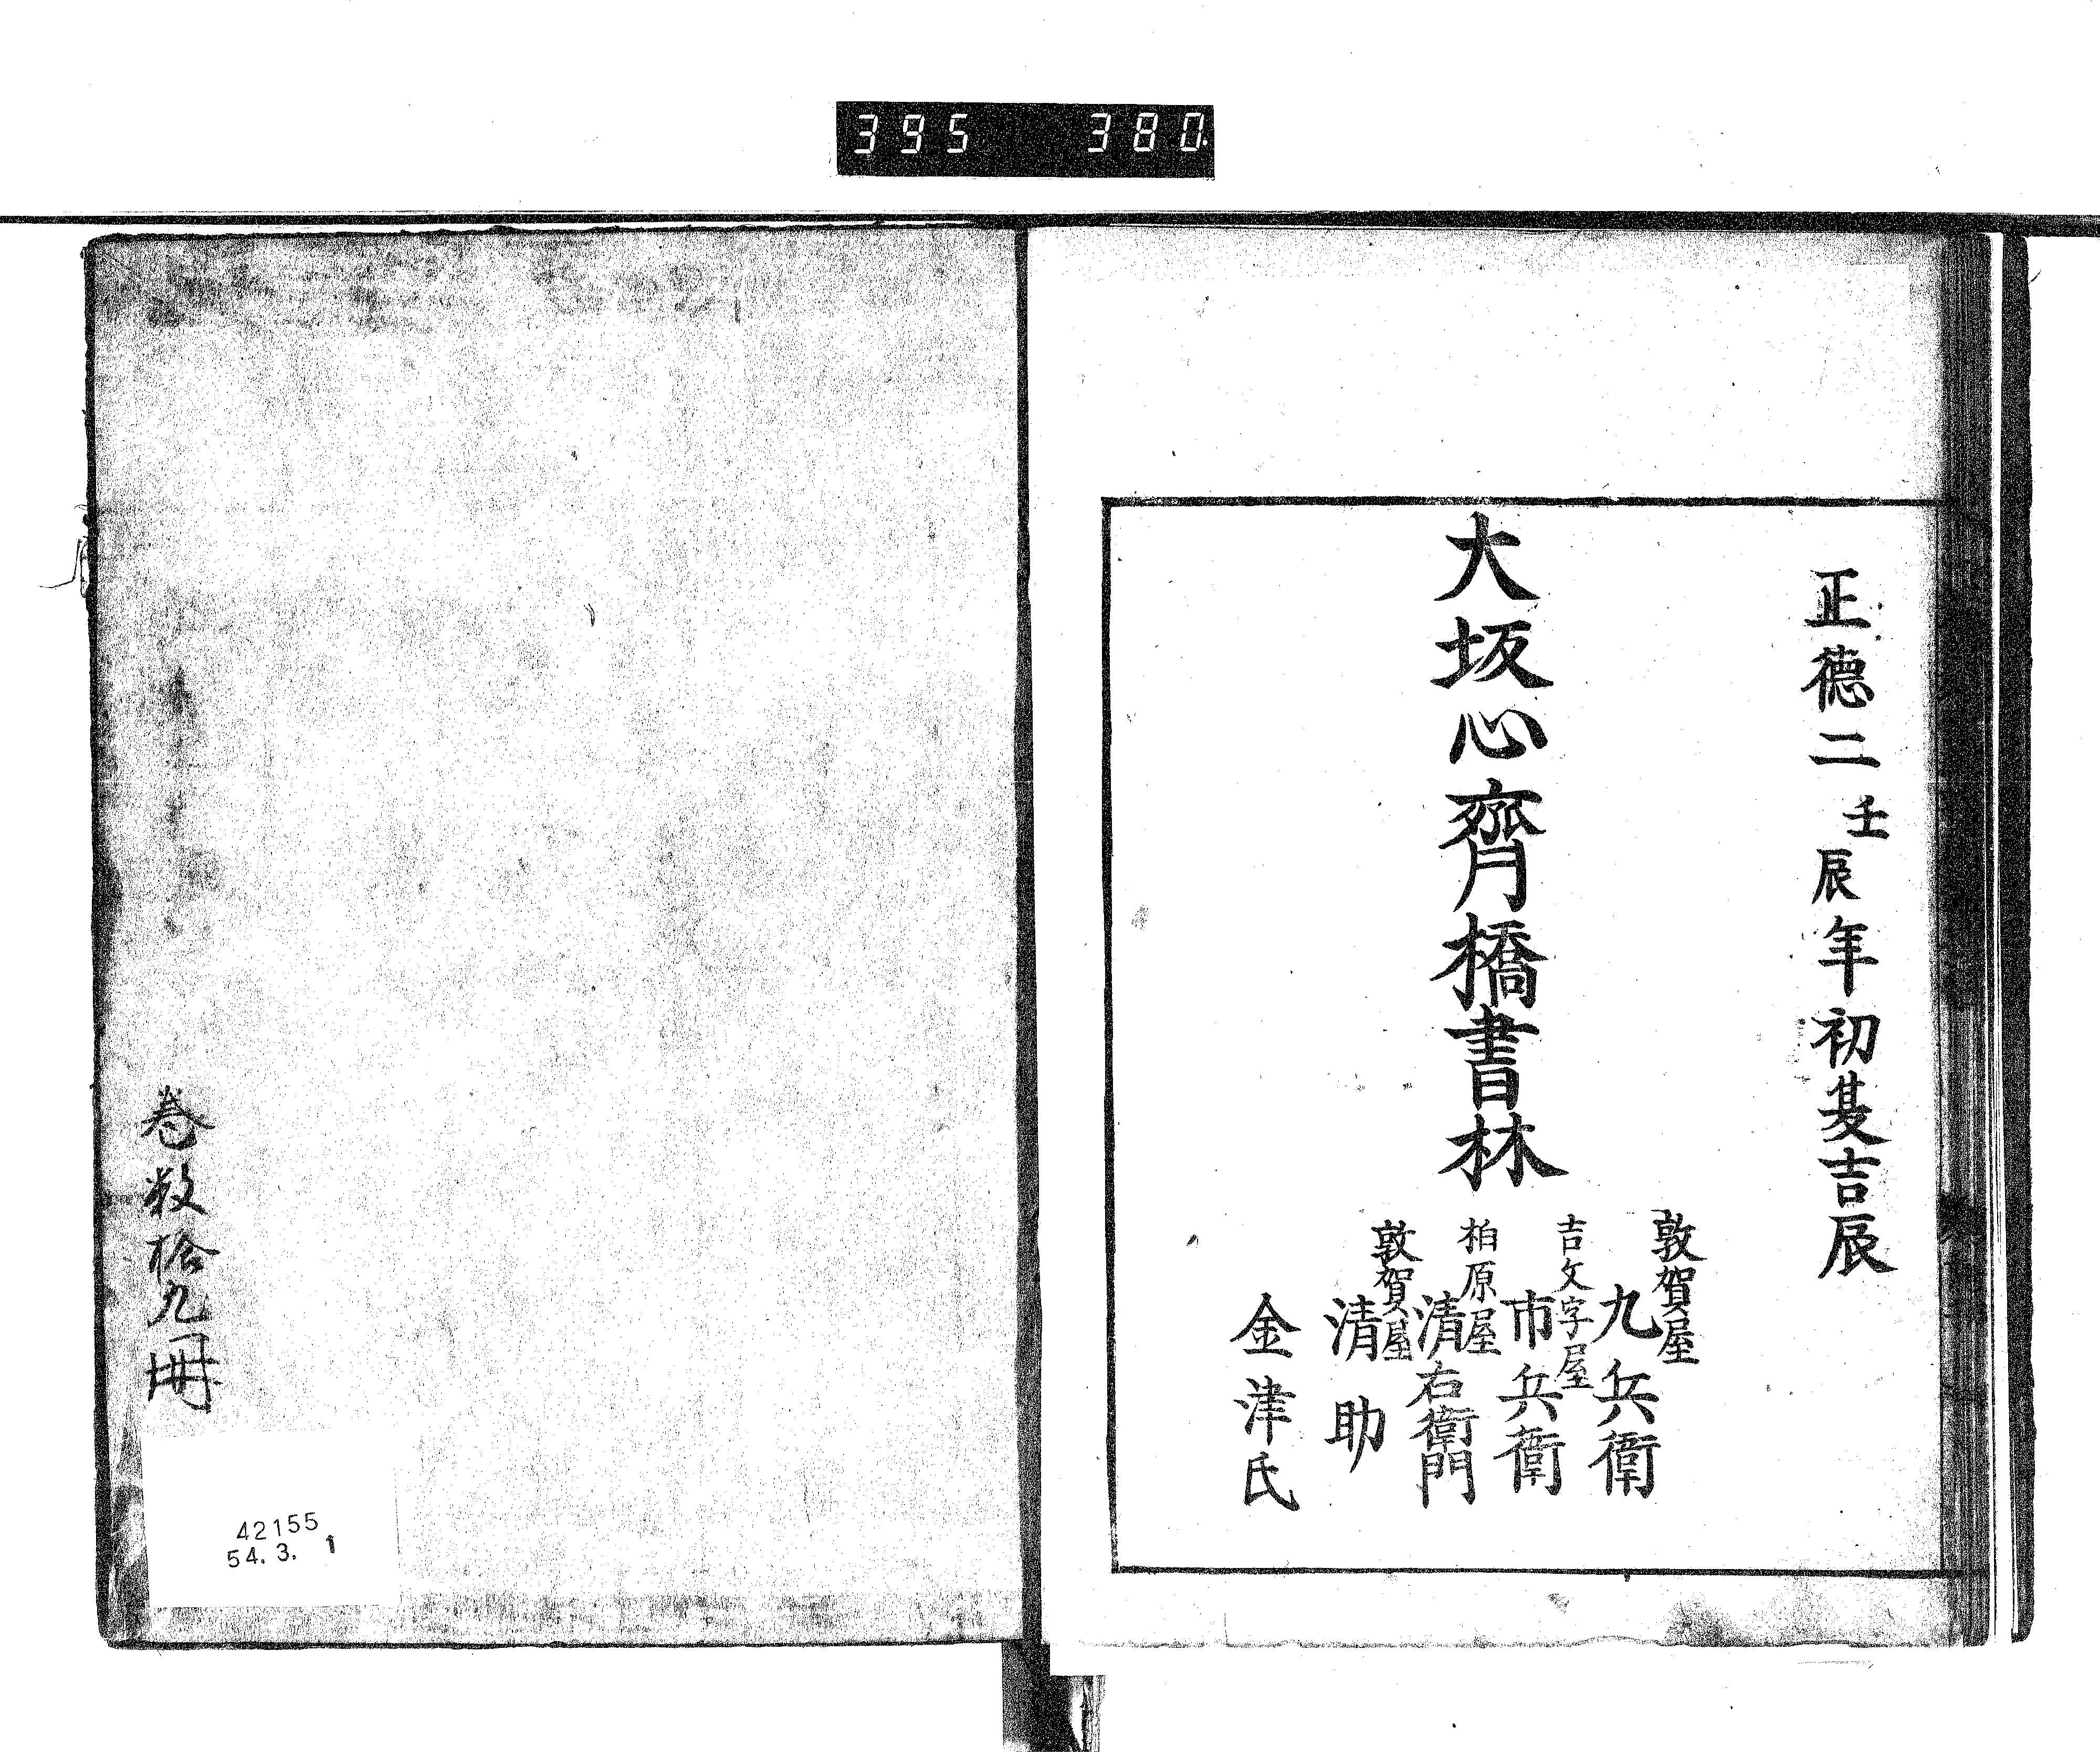 395 380
正徳二壬辰年初夏吉辰
大坂心齊橋書林
敦賀屋
九兵衛
吉文字屋
市兵衛
柏原屋
清右衛門
敦賀屋
清助
金津氏
巻数拾九冊
42155
54.3. 1